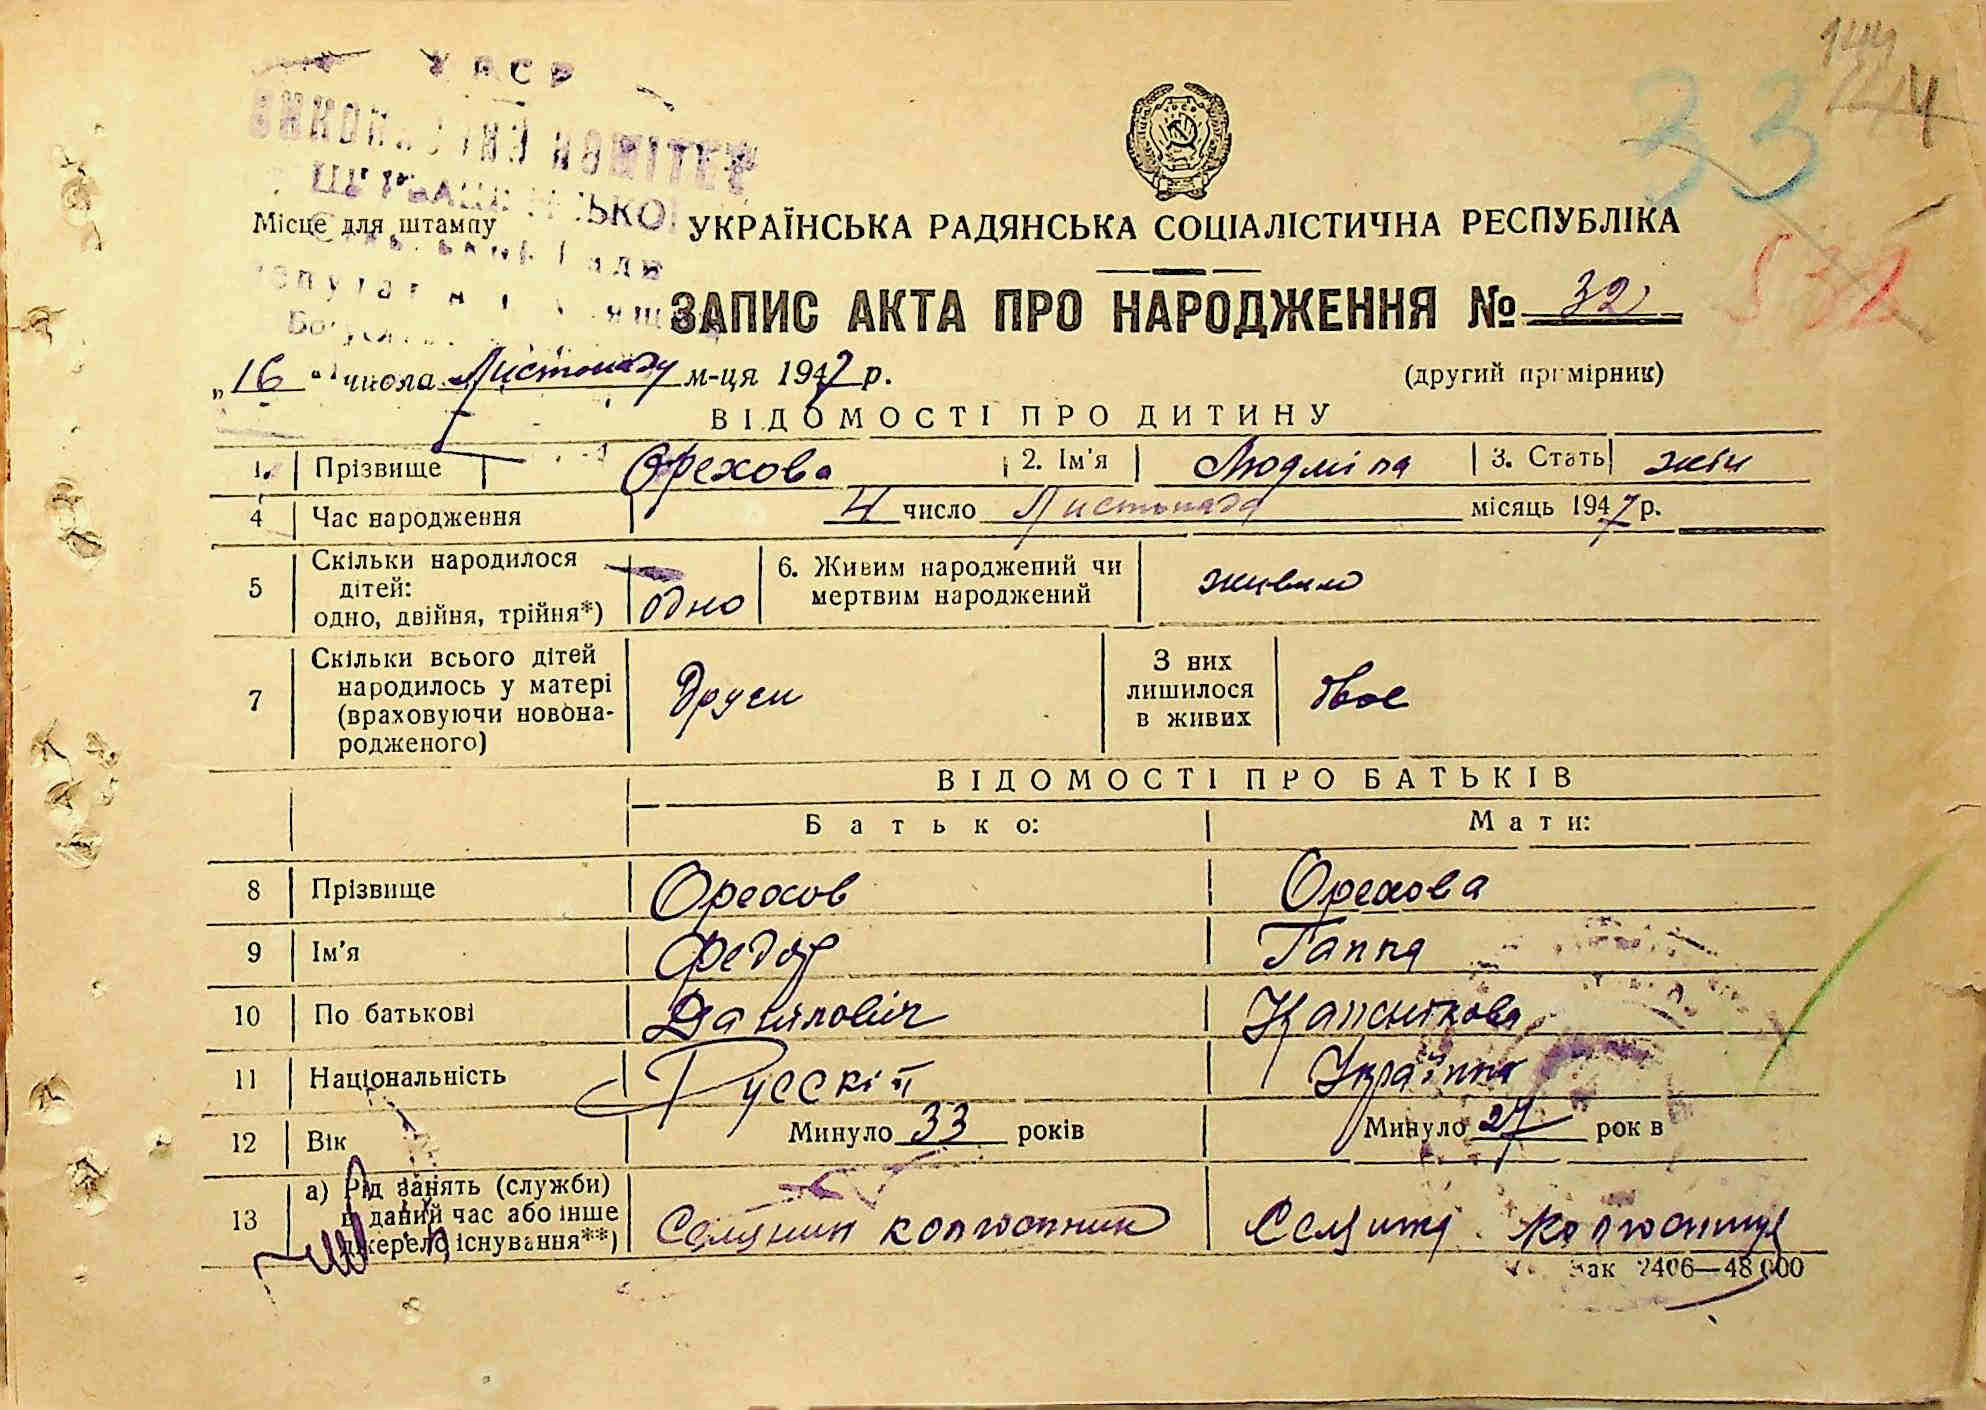 УРСР
ВИКОНАВЧИЙ КОМІТЕТ
Місце для штампу
УКРАЇНСЬКА РАДЯНСЬКА СОЦІАЛІСТИЧНА РЕСПУБЛІКА
33
144
532
ЗАПИС АКТА ПРО НАРОДЖЕННЯ № 32
„16“ числа Листопаду м-ця 1947 р.
(другий примірник)
ВІДОМОСТІ ПРО ДИТИНУ
1. Прізвище Орехова 2. Ім'я Людміла 3. Стать жін
4 Час народження 4 число Листопада місяць 1947 р.
5 Скільки народилося дітей: одно, двійня, трійня*) одно 6. Живим народжений чи мертвим народжений живим
7 Скільки всього дітей народилось у матері (враховуючи новонародженого) Други З них лишилося в живих двое
ВІДОМОСТІ ПРО БАТЬКІВ
Батько: Мати:
8 Прізвище Орехов Орехова
9 Ім'я Федор Ганна
10 По батькові Данилович
11 Національність Русскій Українка
12 Вік Минуло 33 років Минуло 27 років
13 а) Рід занять (служби) в даний час або інше джерело існування**) Селянин колгоспник Селянка колгоспниця
Зак 2406—48 000